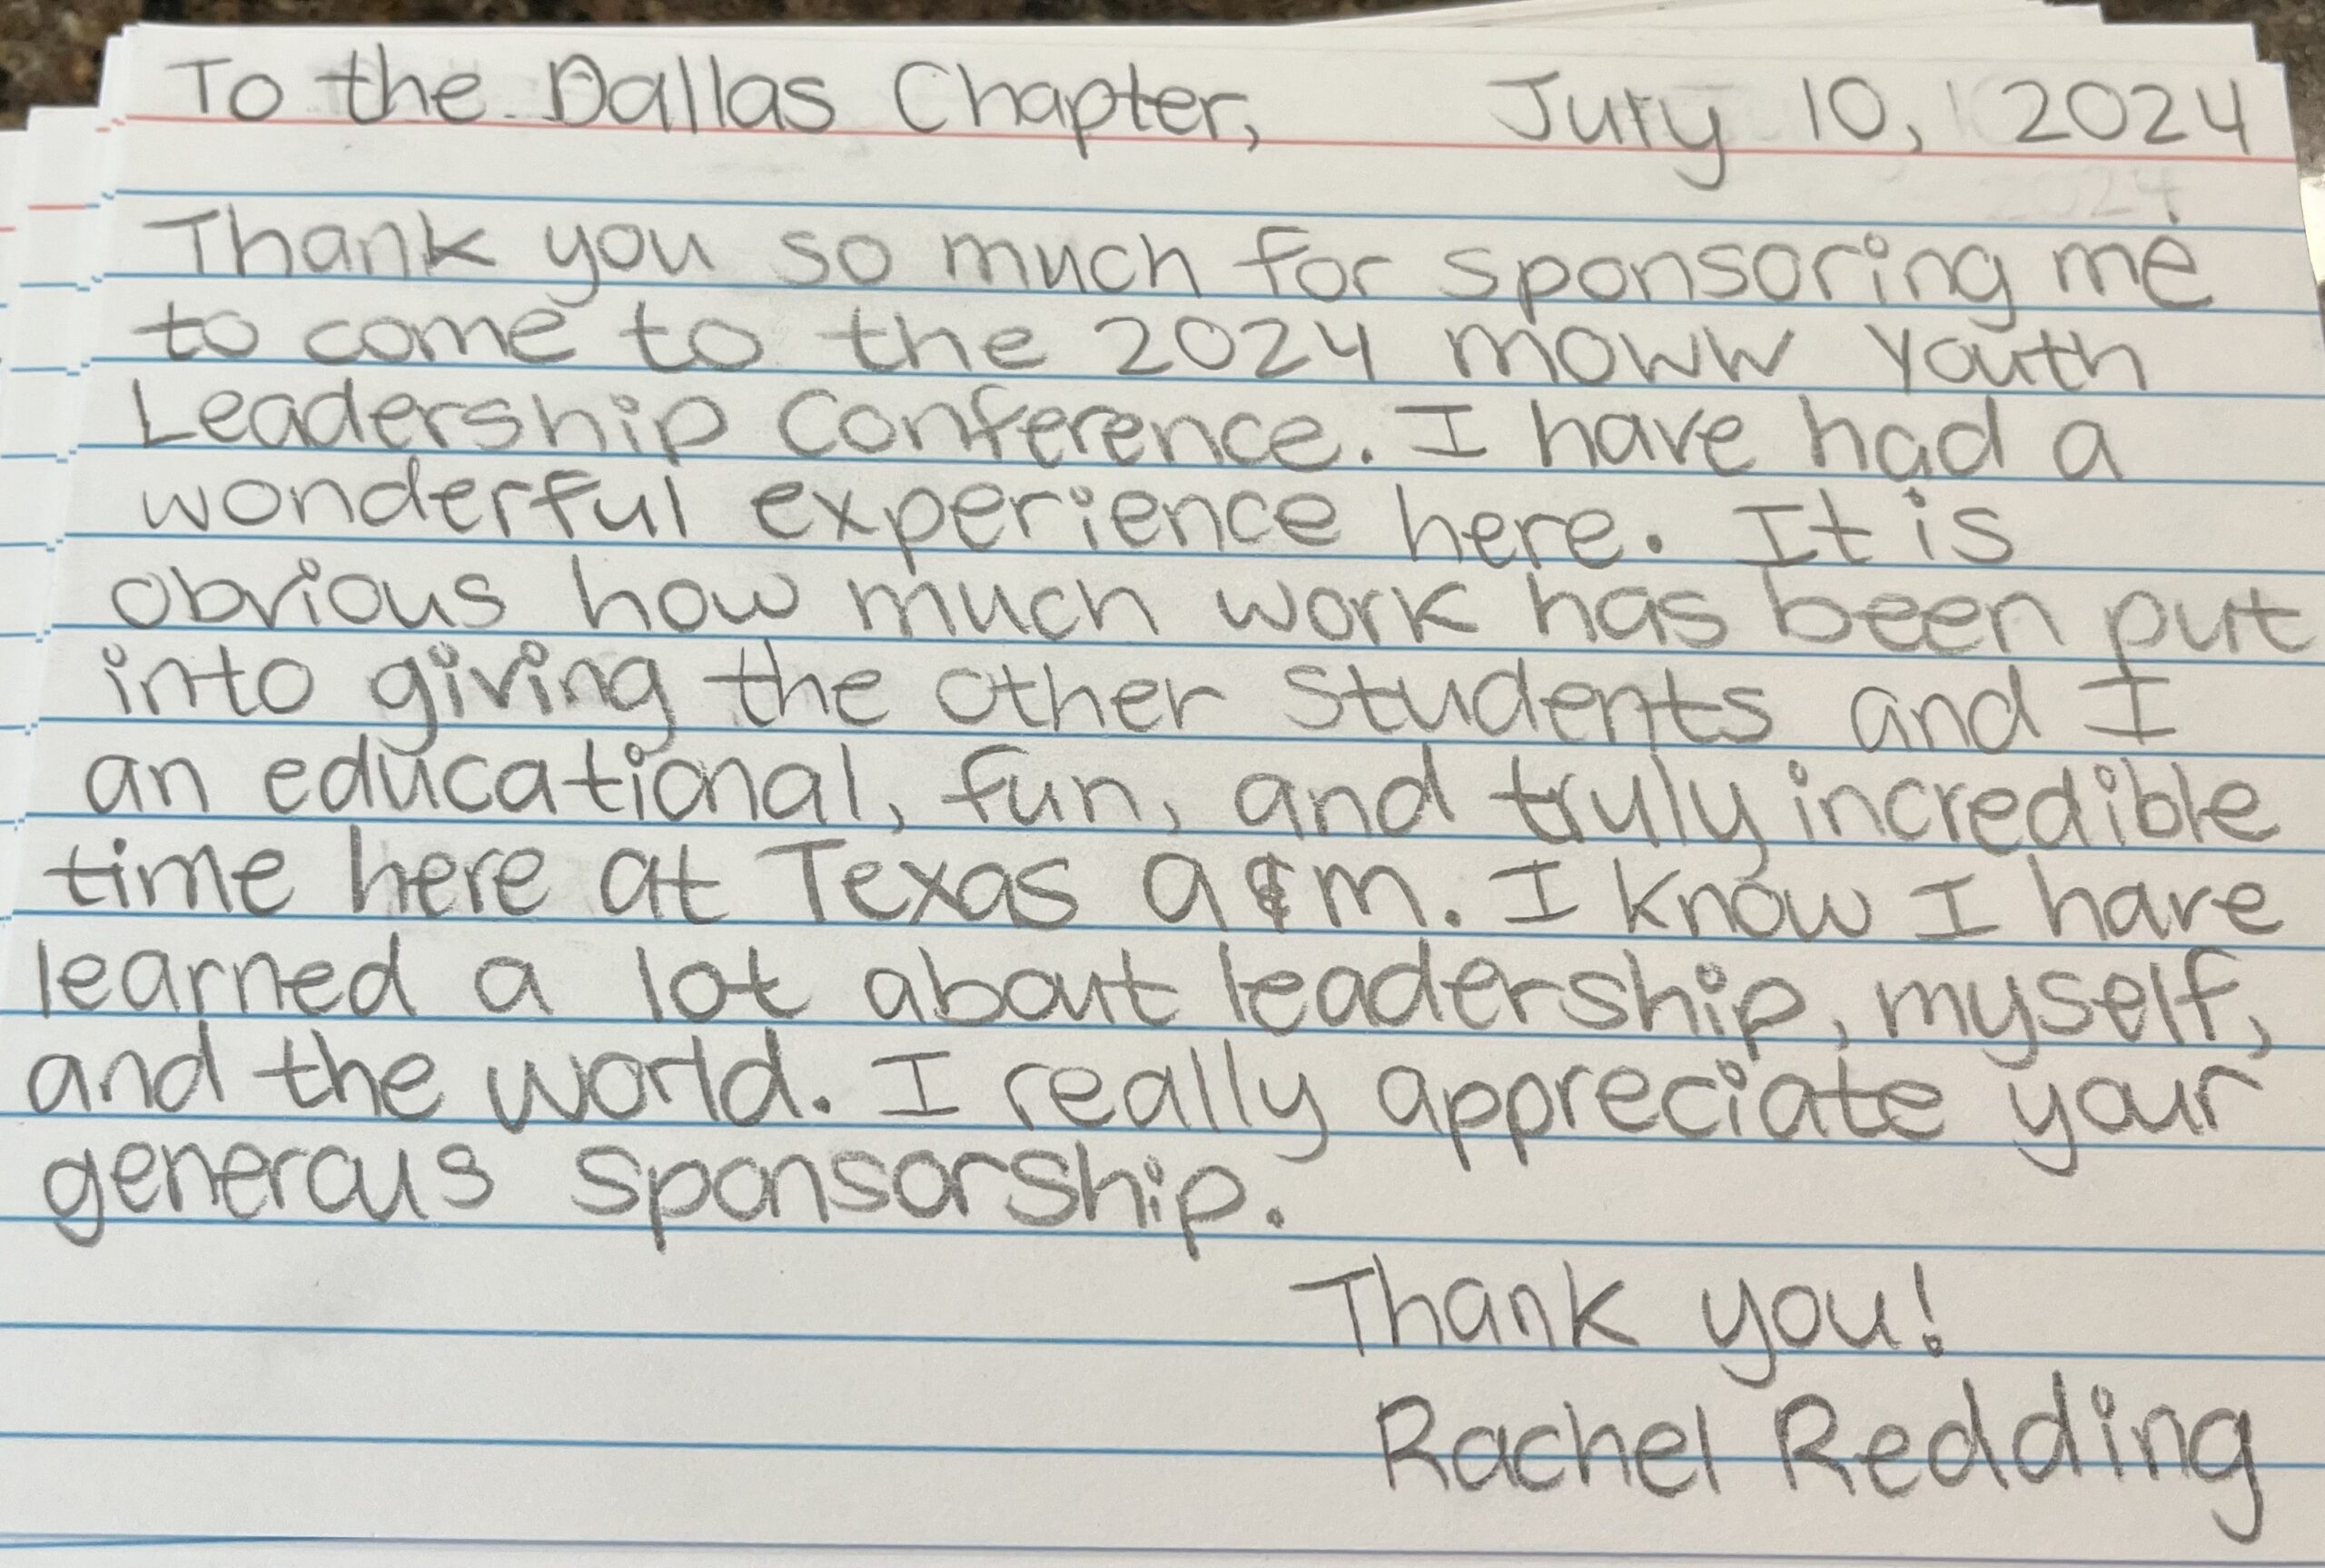 To the Dallas Chapter, July 10, 2024
Thank you so much for sponsoring me
to come to the 2024 MOWW Youth
Leadership Conference. I have had a
wonderful experience here. It is
obvious how much work has been put
into giving the other students and I
an educational, fun, and truly incredible
time here at Texas A&M. I know I have
learned a lot about leadership, myself,
and the world. I really appreciate your
generous sponsorship.
Thank you!
Rachel Redding